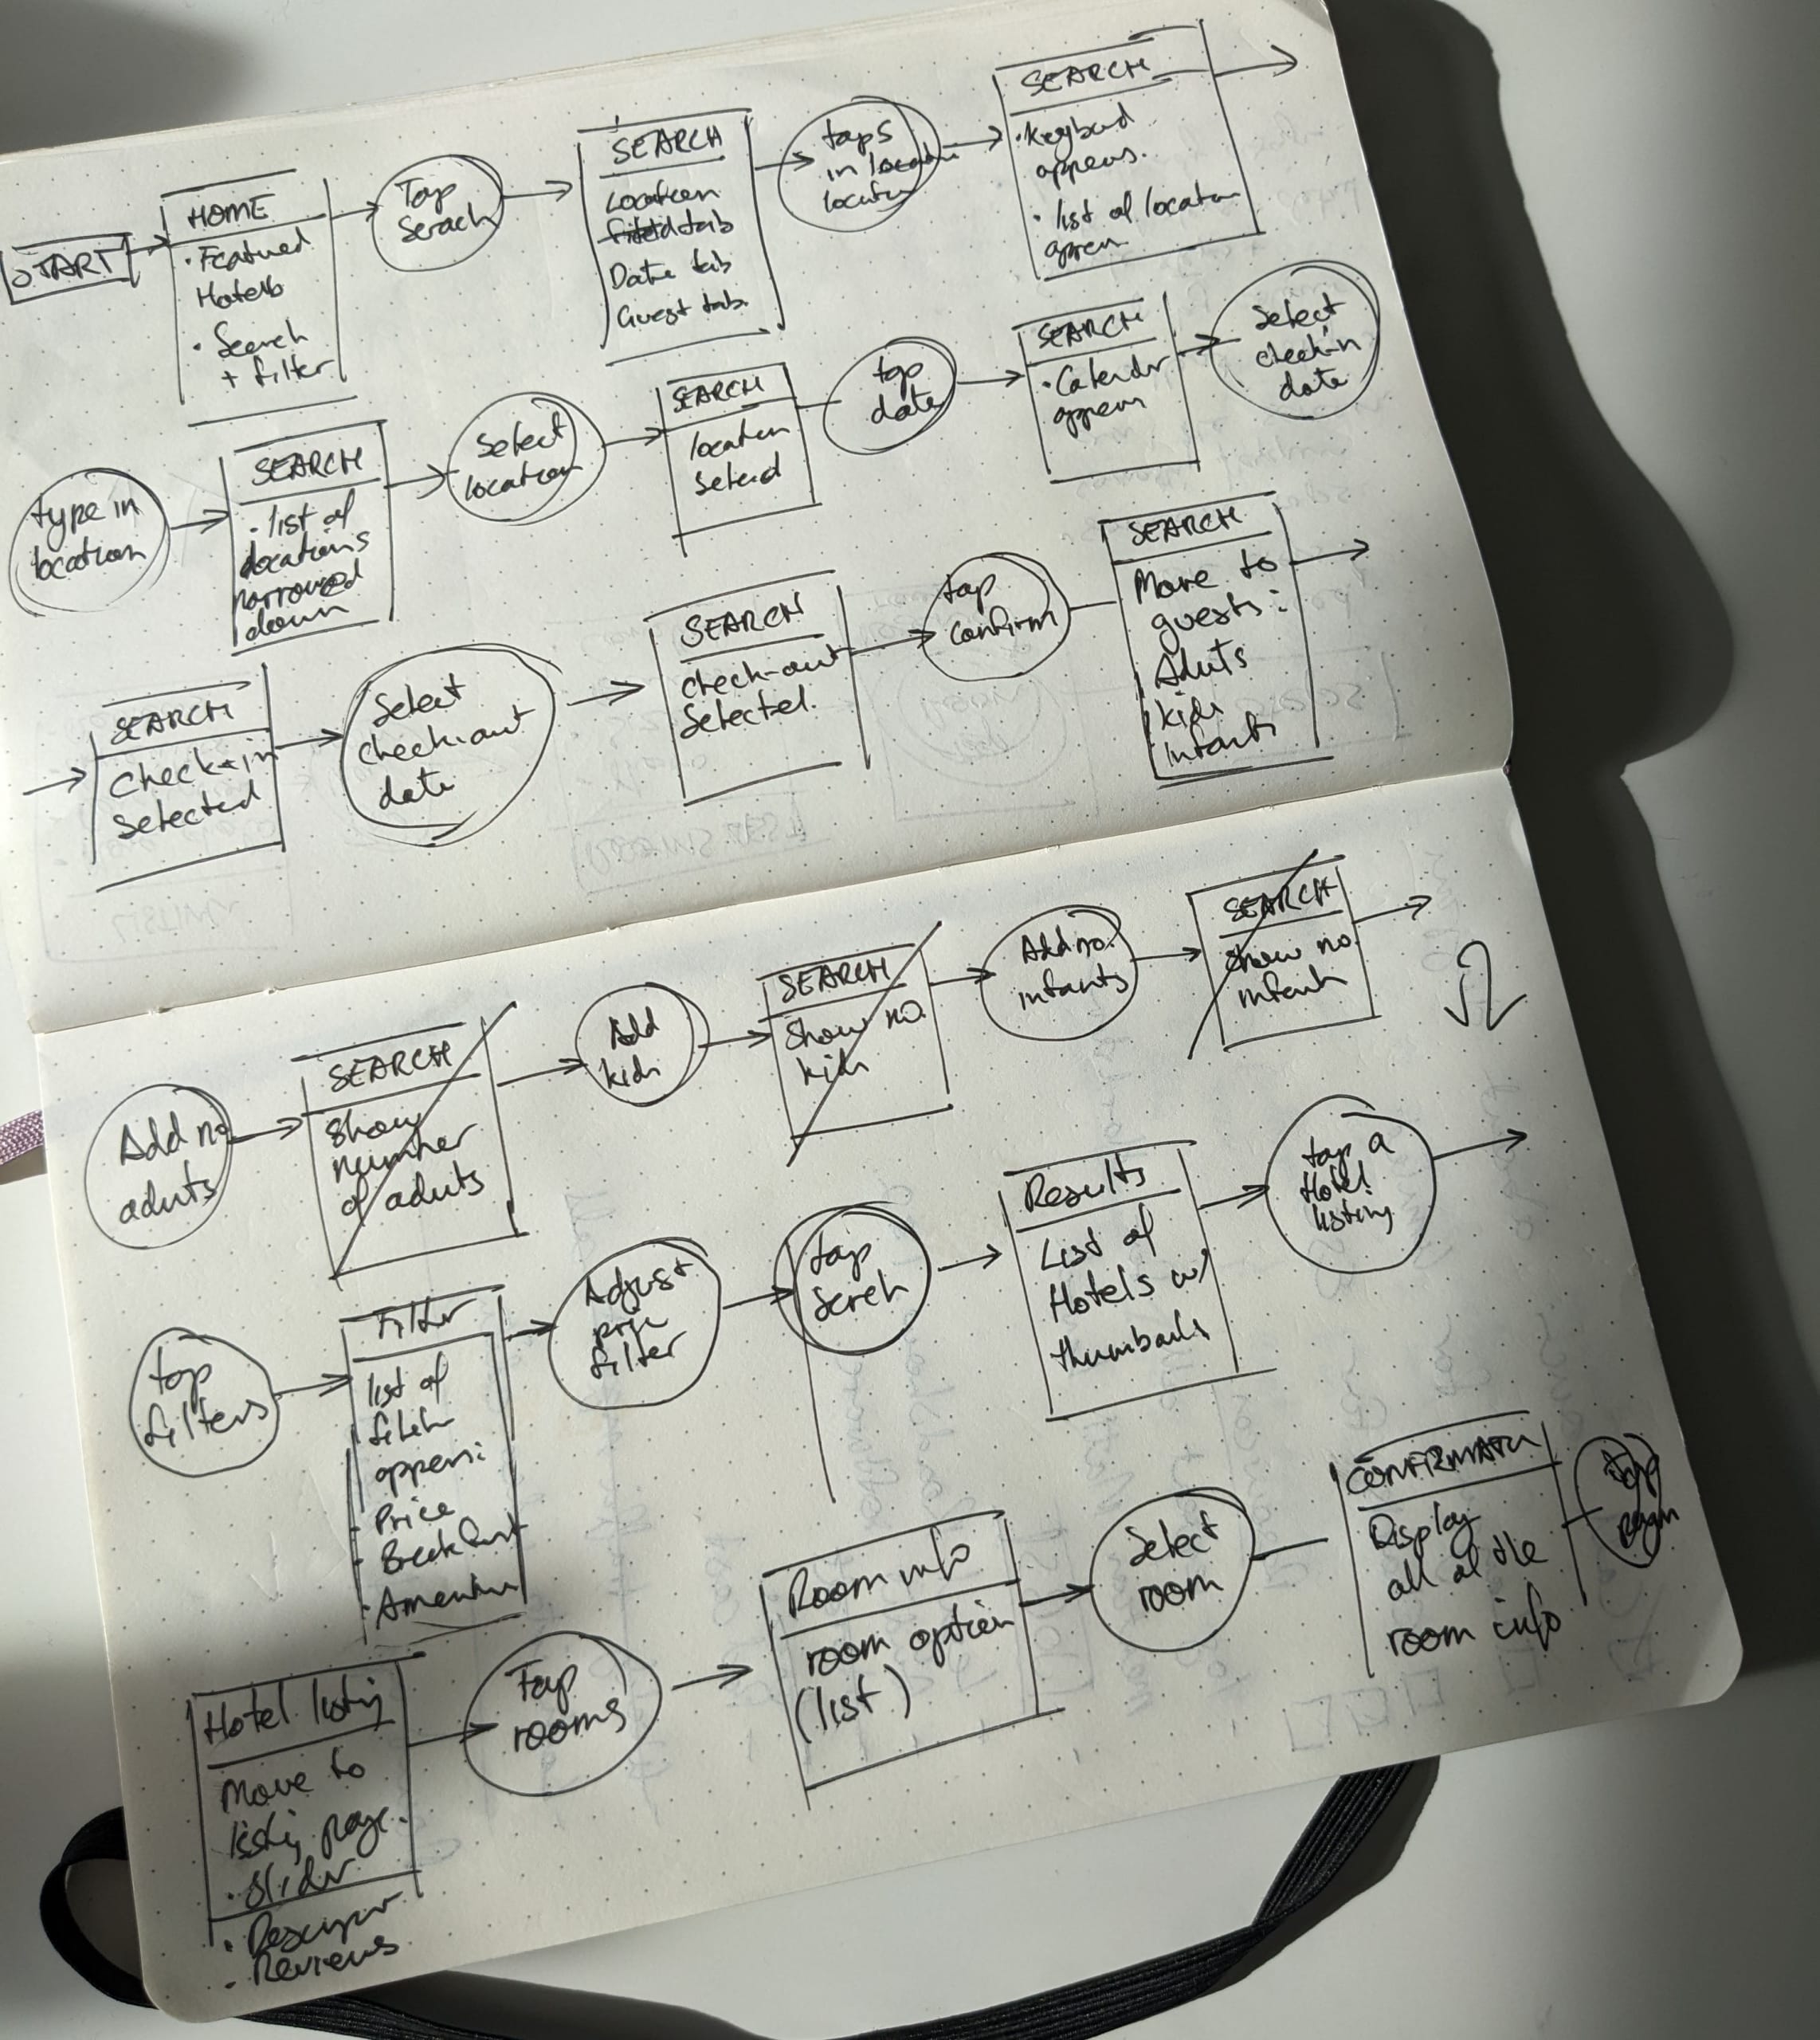 START
HOME
• Featured
Hotels
• Search
+ filter
Tap
Serach
SEARCH
Location
tab
Date tab
Guest tab.
taps
in
location
SEARCH
• Keyboard
appears.
• list of location
appear
type in
location
SEARCH
• list of
locations
narrowed
down
Select
location
SEARCH
location
tap
date
SEARCH
• Calendar
appears
Select
check-in
date
SEARCH
Check-in
Selected
Select
check-out
date
SEARCH
check-out
Selected.
tap
confirm
SEARCH
Move to
guests:
Aduts
kids
infants
Add no
aduts
SEARCH
Show
number
of aduts
Add
kids
SEARCH
Show no.
kids
Add no.
infants
SEARCH
Show no.
infants
tap
filters
Filter
list of
appear:
• Price
• Breakfast
• Amenities
Adjust
price
filter
tap
Serch
Results
List of
Hotels w/
thumbails
tap a
Hotel
listing
Hotel listing
Move to
listing page.
• Slider
•
- Reviews
Tap
rooms
Room info
room option
(list)
Select
room
CONFIRMATION
Display
all of the
room info